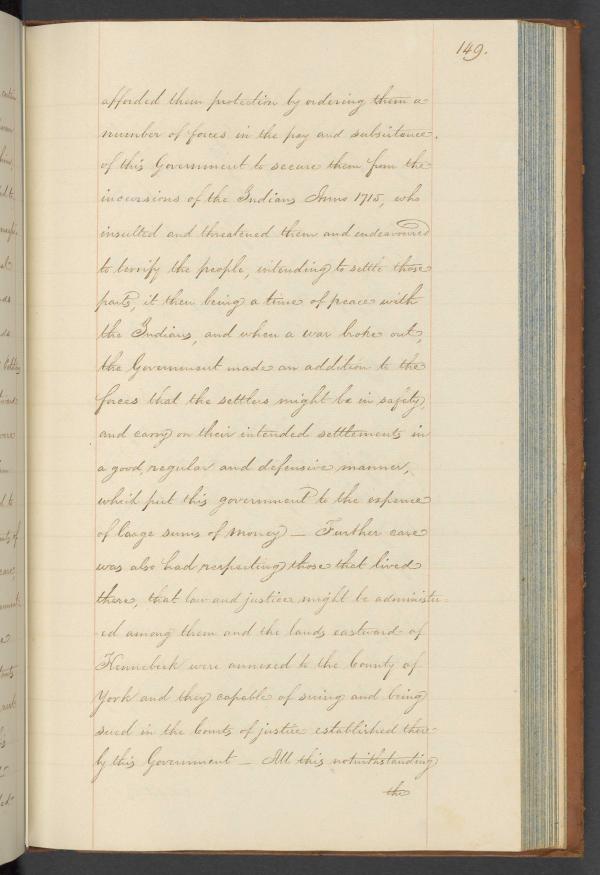 149.
afforded them protection by ordering them a
number of forces in the pay and subsistence
of this Government to secure them from the
incursions of the Indians Anno 1715, who
insulted and threatened them and endeavoured
to terrify the people, intending to settle those
parts, it then being a time of peace with
the Indians, and when a war broke out,
the Government made an addition to the
forces that the settlers might be in safety,
and carry on their intended settlements in
a good, regular and defensive manner,
which put this government to the expence
of large sums of money — Further care
was also had respecting those that lived
there, that law and justice might be administer-
-ed among them and the lands eastward of
Kennebeck were annexed to the County of
York and they capable of suing and being
sued in the Courts of justice established there
by this Government — All this notwithstanding
the